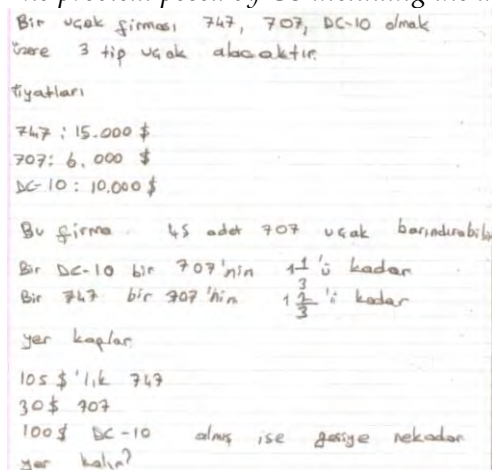 Bir uçak firması 747, 707, DC-10 olmak
üzere 3 tip uçak alacaktır.
fiyatları
747 : 15.000 $
707 : 6.000 $
DC-10 : 10.000 $
Bu firma 45 adet 707 uçak barındırabilir
Bir DC-10 bir 707'nin 1 1/3 'ü kadar
Bir 747 bir 707'nin 1 2/3 'ü kadar
yer kaplar
105 $ 'lık 747
30 $ 707
100 $ DC-10 almış ise geriye nekadar
yer kalır?